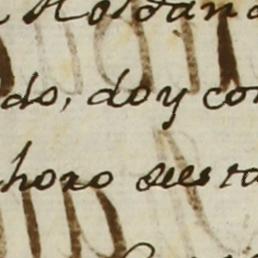 Roldan
do, doy con
horo sees ta